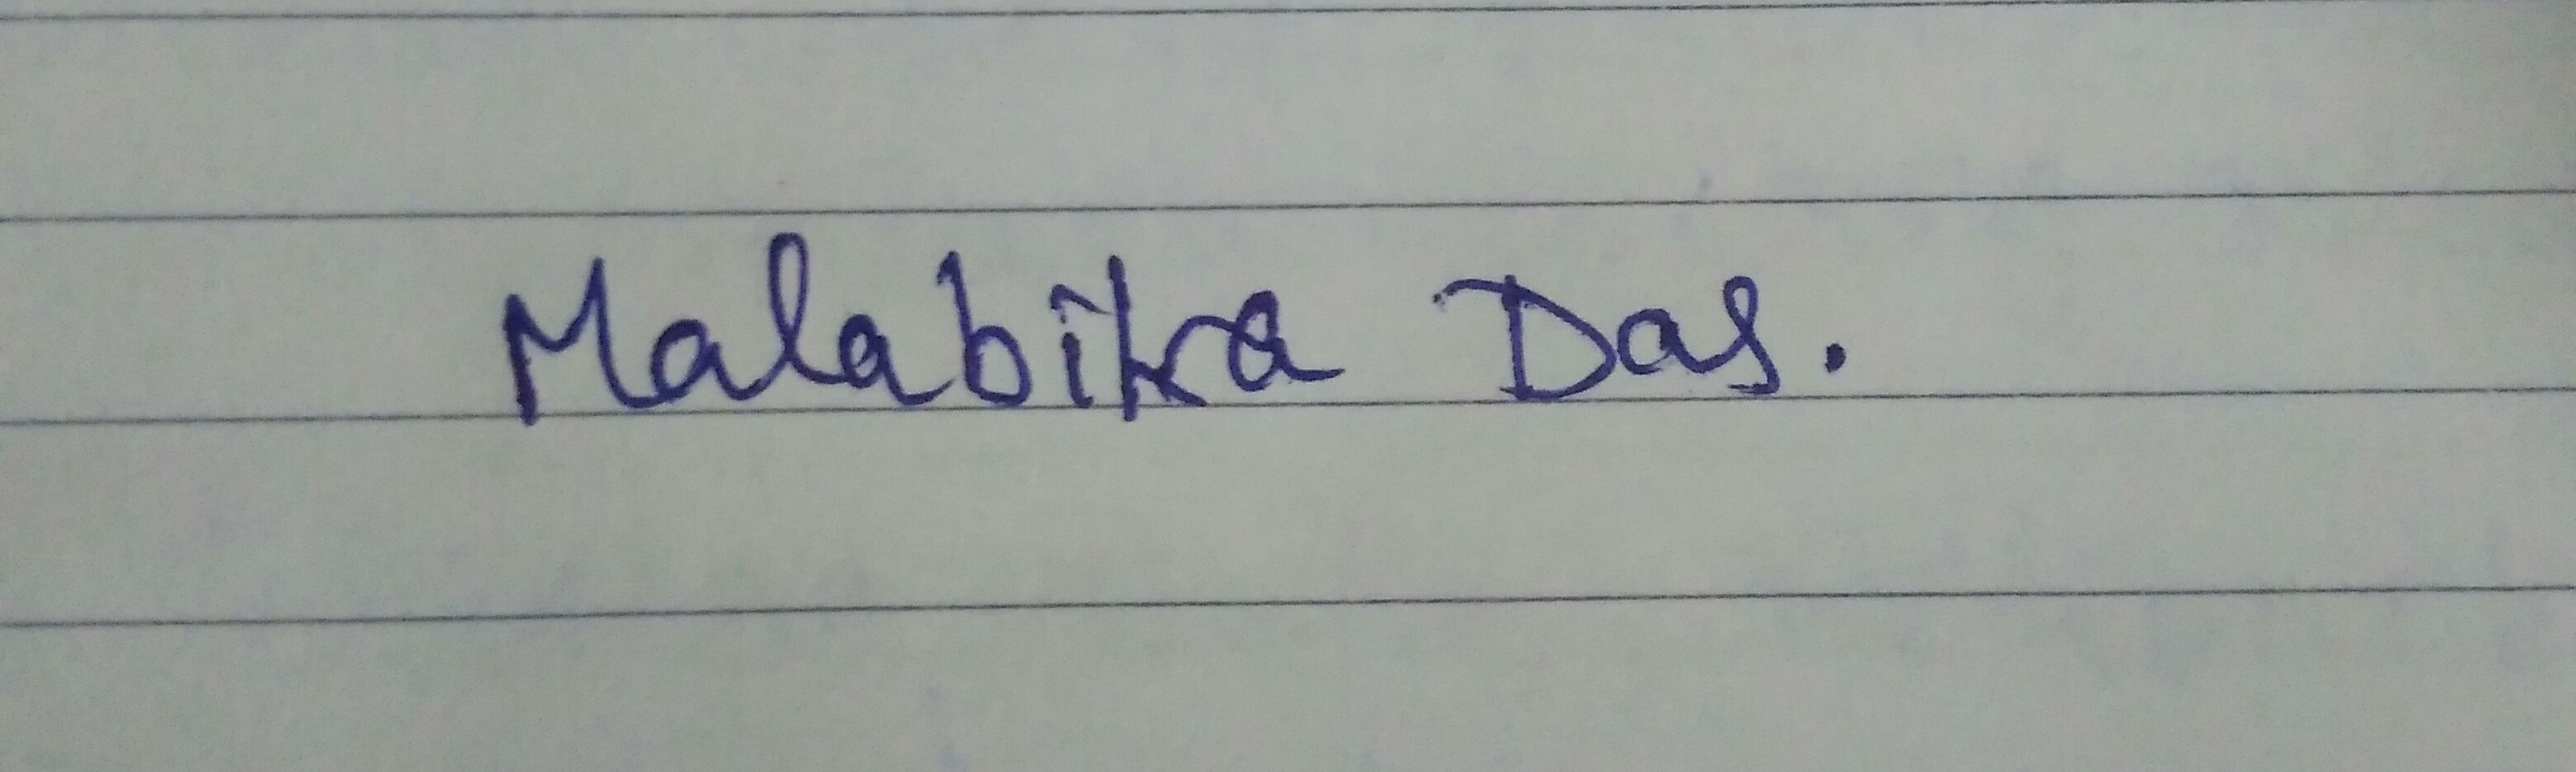 Malabika Das.